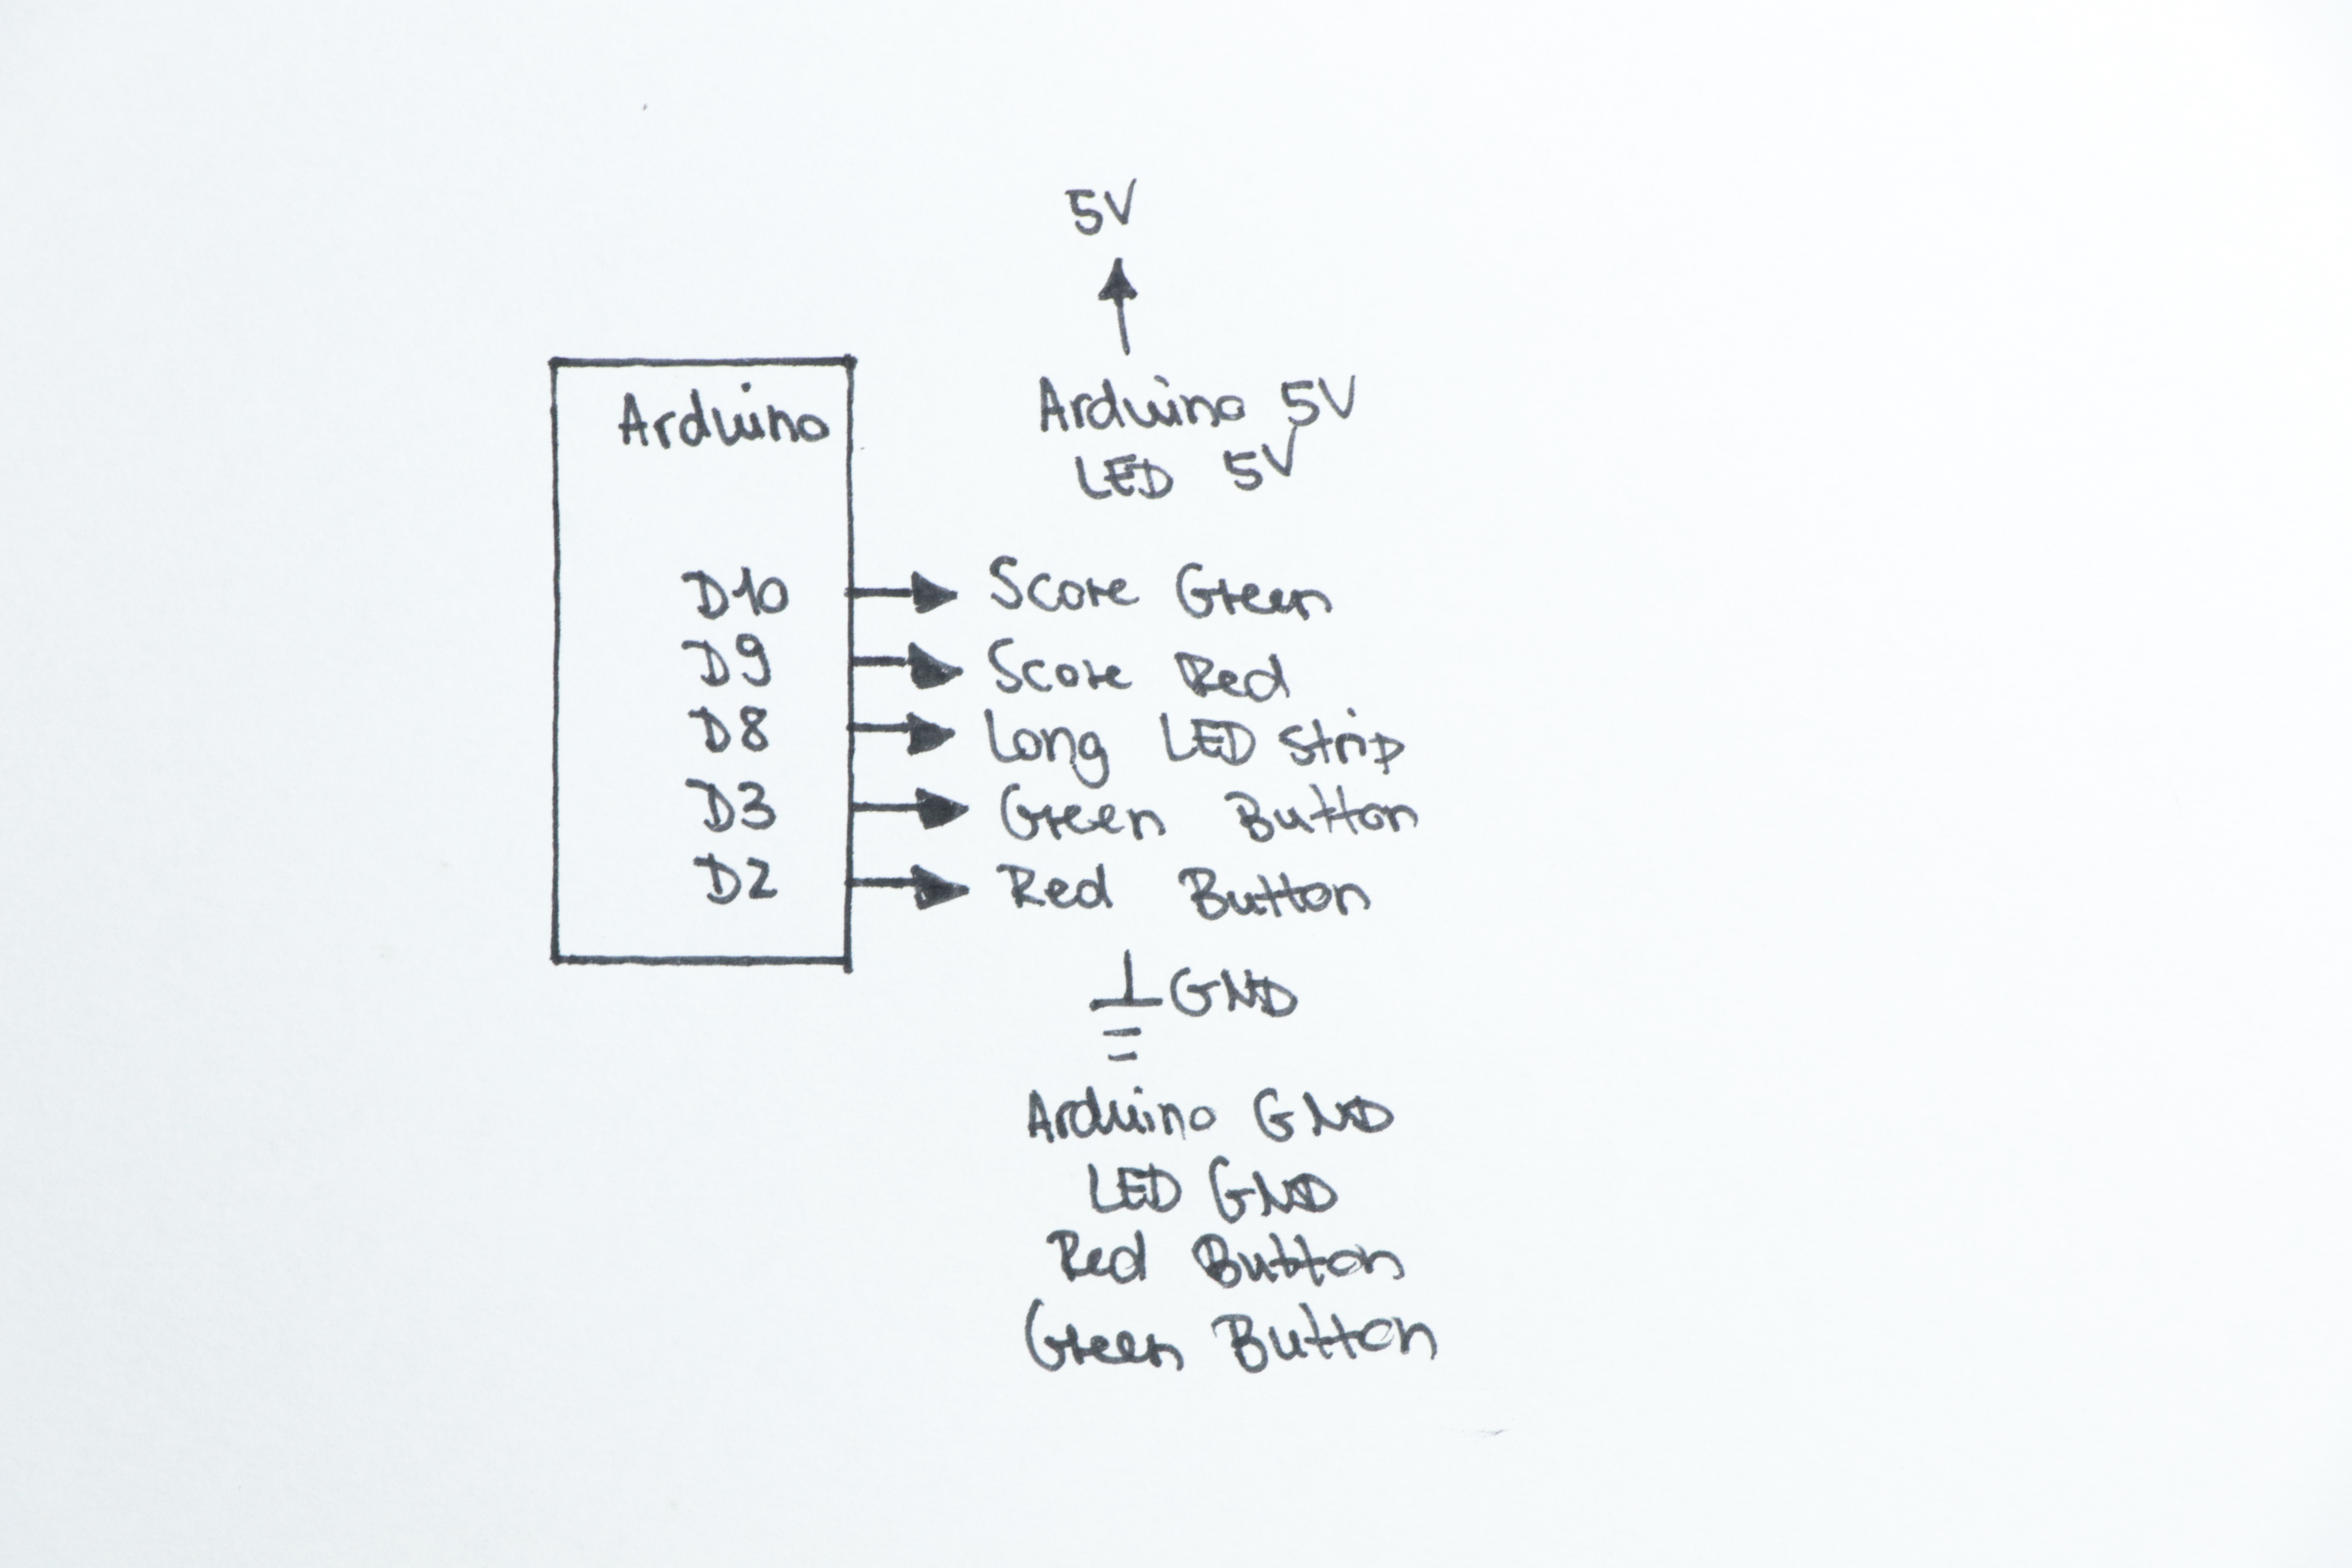 5V
Arduino 5V
LED 5V
Arduino
D10 Score Green
D9 Score Red
D8 Long LED Strip
D3 Green Button
D2 Red Button
GND
Arduino GND
LED GND
Red Button
Green Button